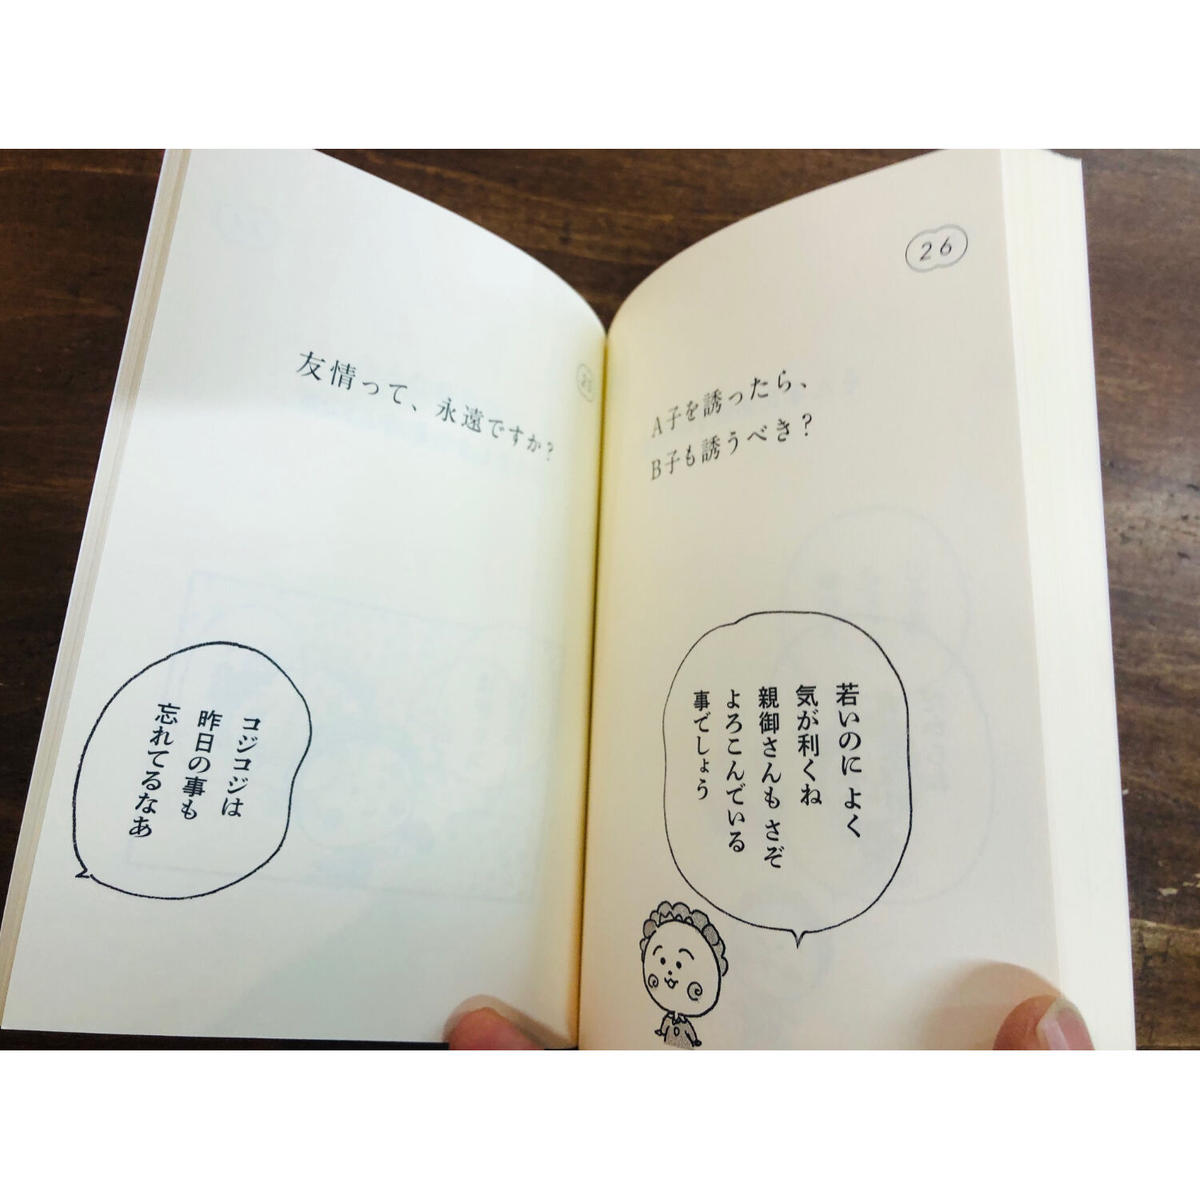 友情って、永遠ですか?
コジコジは
昨日の事も
忘れてるなあ
26
A子を誘ったら、
B子も誘うべき?
若いのに よく
気が利くね
親御さんも さぞ
よろこんでいる
事でしょう